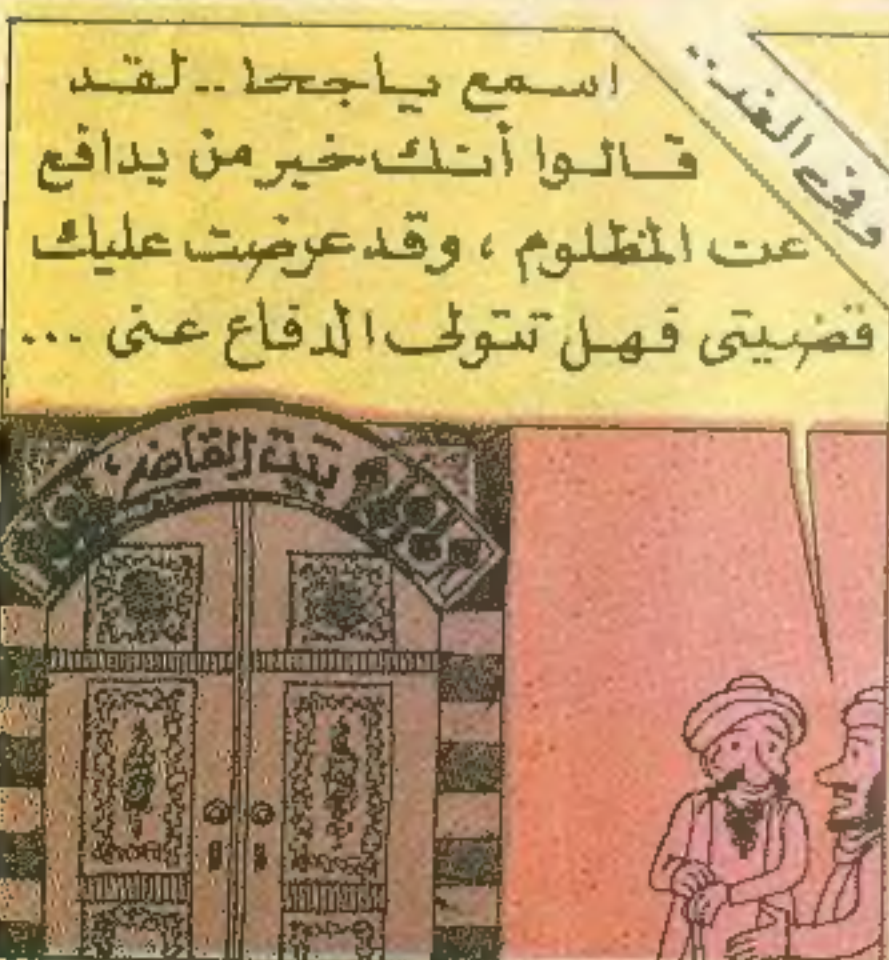 وفي الغد..
اسمع ياجحا .. لقد
قالوا أنك خير من يدافع
عن المظلوم ، وقد عرضت عليك
قضيتى فهل تتولى الدفاع عنى ...
بيت القاضى